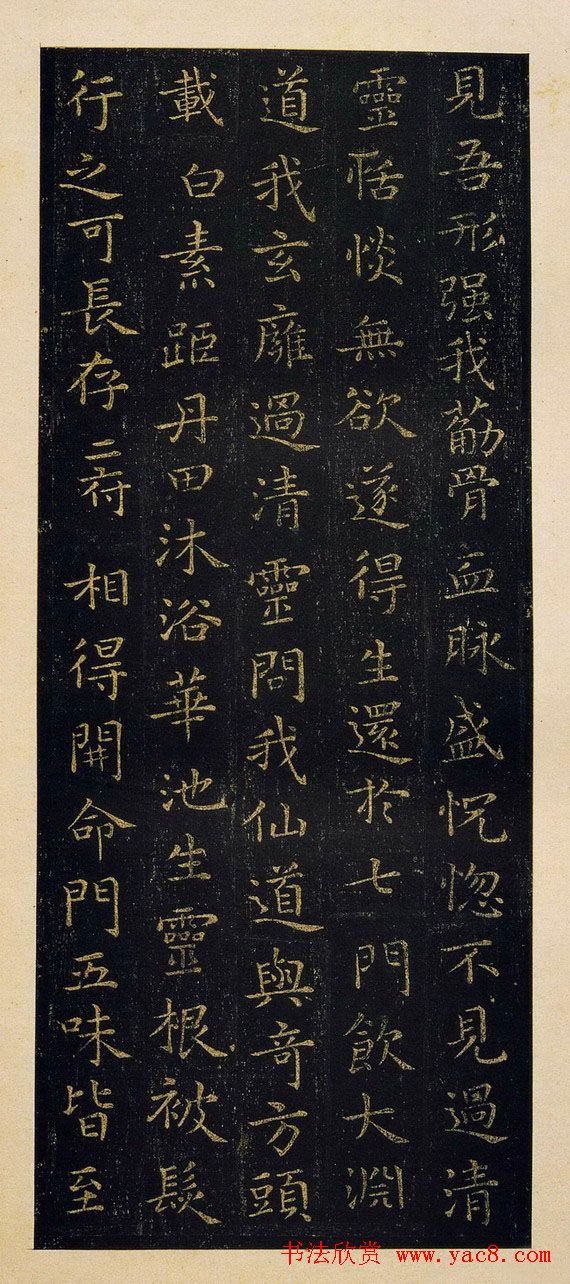 見吾形强我荕骨血脉盛怳惚不見過清
靈恬惔無欲遂得生還於七門飲大淵
道我玄廱過清靈問我仙道與奇方頭
載白素距丹田沐浴華池生靈根被髮
行之可長存二府相得開命門五味皆至
书法欣赏 www.yac8.com